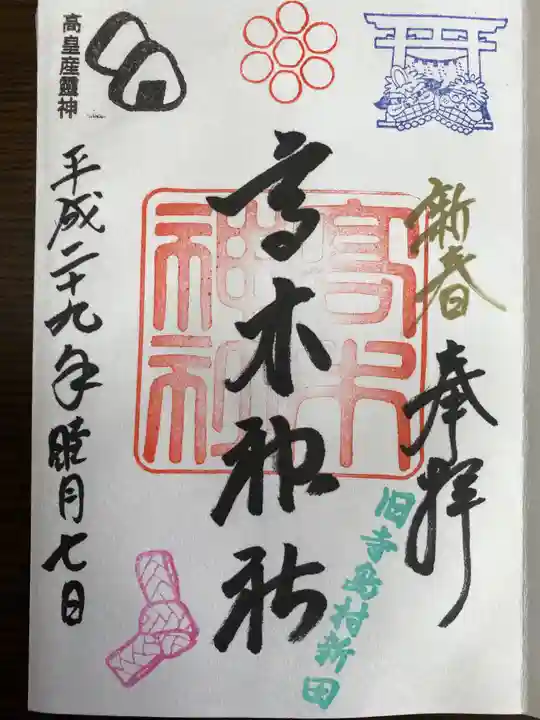 新春
奉拝
旧寺島村新田
高木神社
高木神社
高皇産靈神
平成二十九年睦月七日